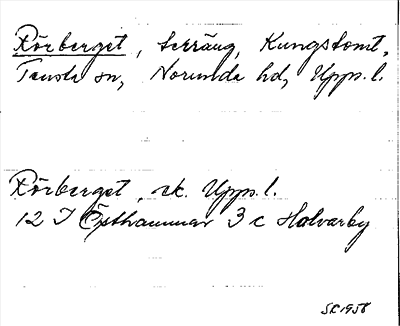 Rörberget, terräng, Kungstomt,
Tensta sn, Norunda hd, Upps. l.
Rörberget, ek. Upps. l.
12 I Östhammar 3 c Halvarby
SE 1958